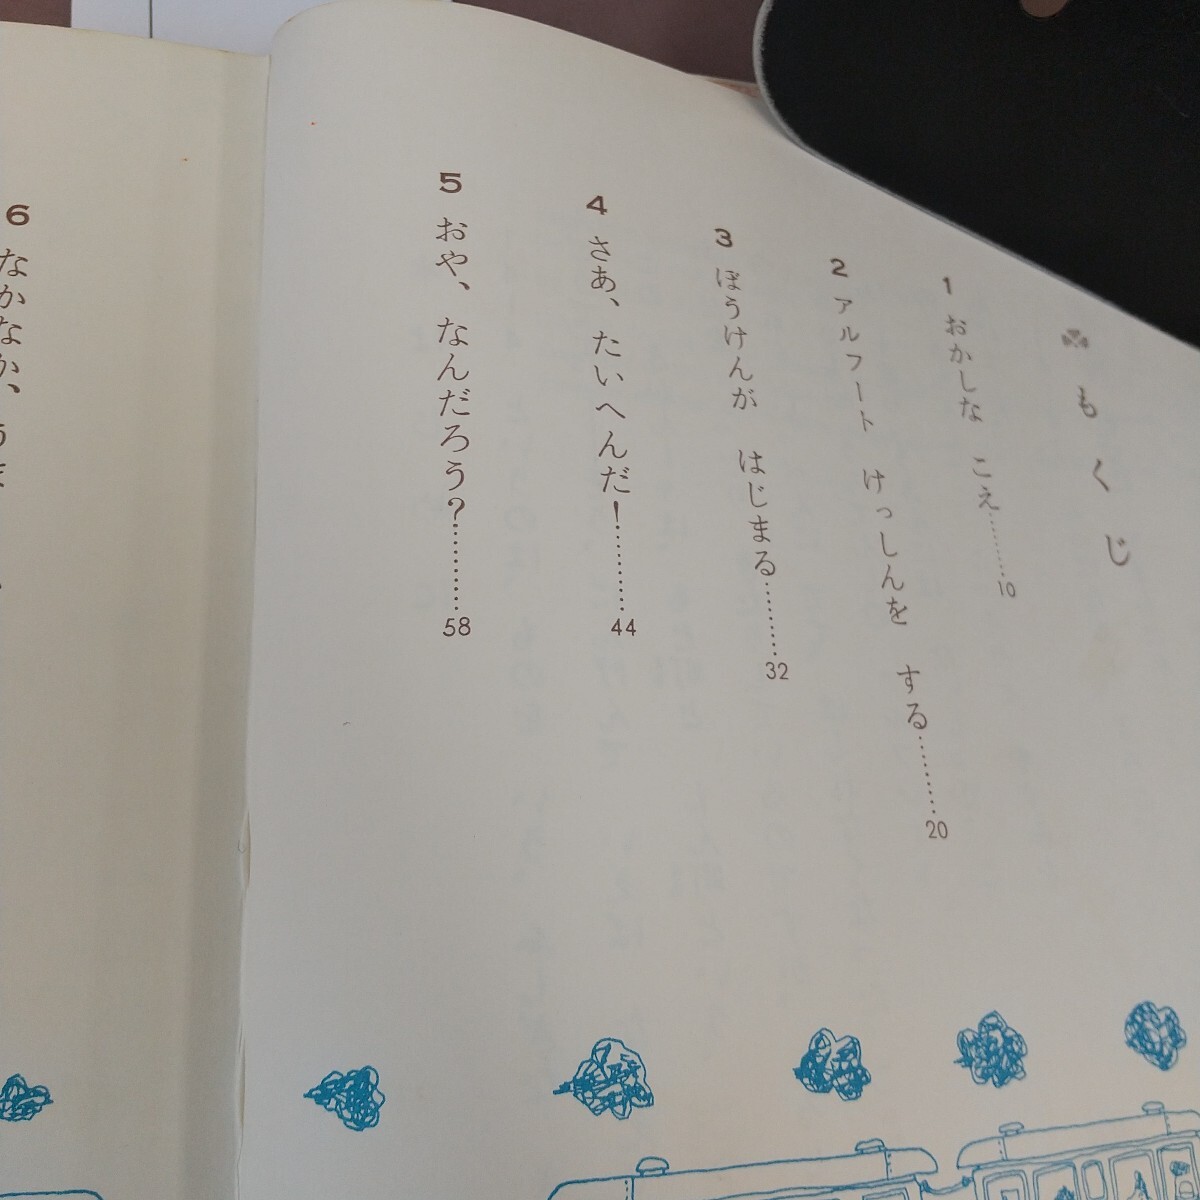 もくじ
1 おかしな こえ………10
2 アルフート けっしんを する………20
3 ぼうけんが はじまる………32
4 さあ、たいへんだ!………44
5 おや、なんだろう?………58
6 なかなか、うま